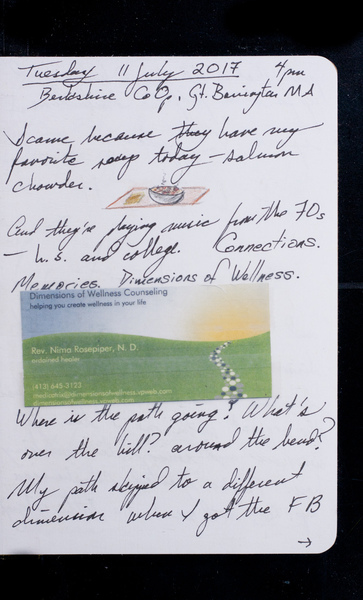 Tuesday 11 July 2017 4pm
Berkshire CoOp, Gt. Barrington MA
I came because they have my
favorite soup today - salmon
chowder.
And they're playing music from the 70s
- h.s. and college. Connections.
Memories. Dimensions of Wellness.
Dimensions of Wellness Counseling
helping you create wellness in your life
Rev. Nima Rosepiper, N. D.
ordained healer
(413) 645-3123
Where is the path going? What's
over the hill? around the bend?
My path skipped to a different
dimension when I got the FB
→